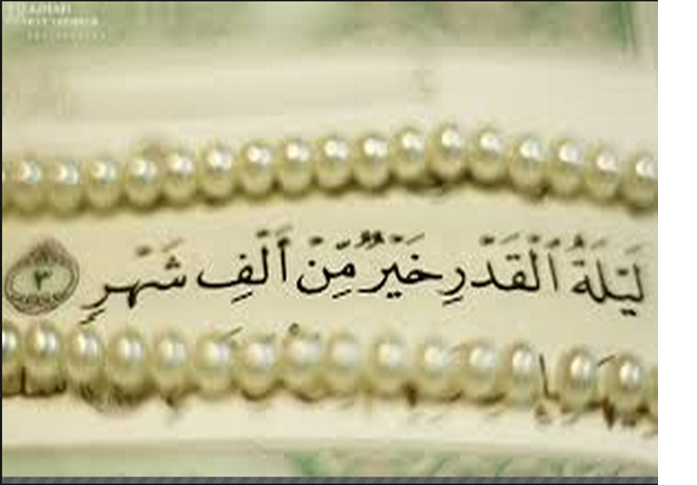 لَيْلَةُ ٱلْقَدْرِ خَيْرٌ مِّنْ أَلْفِ شَهْرٍ ٣